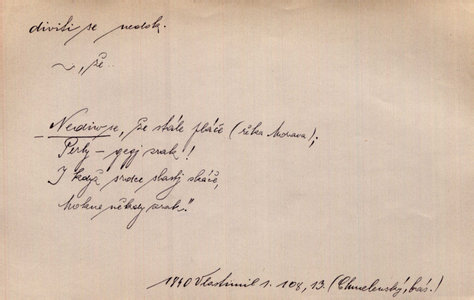 diviti se nedok.
~ „že..
Nediw se, že stále pláče (řeka Morava);
Perly – gegj zrak!
I když srdce slastj skáče,
Mokne někdy zrak."
1840 Vlastimil 1. 108, 13. (Chmelenský, bás.)